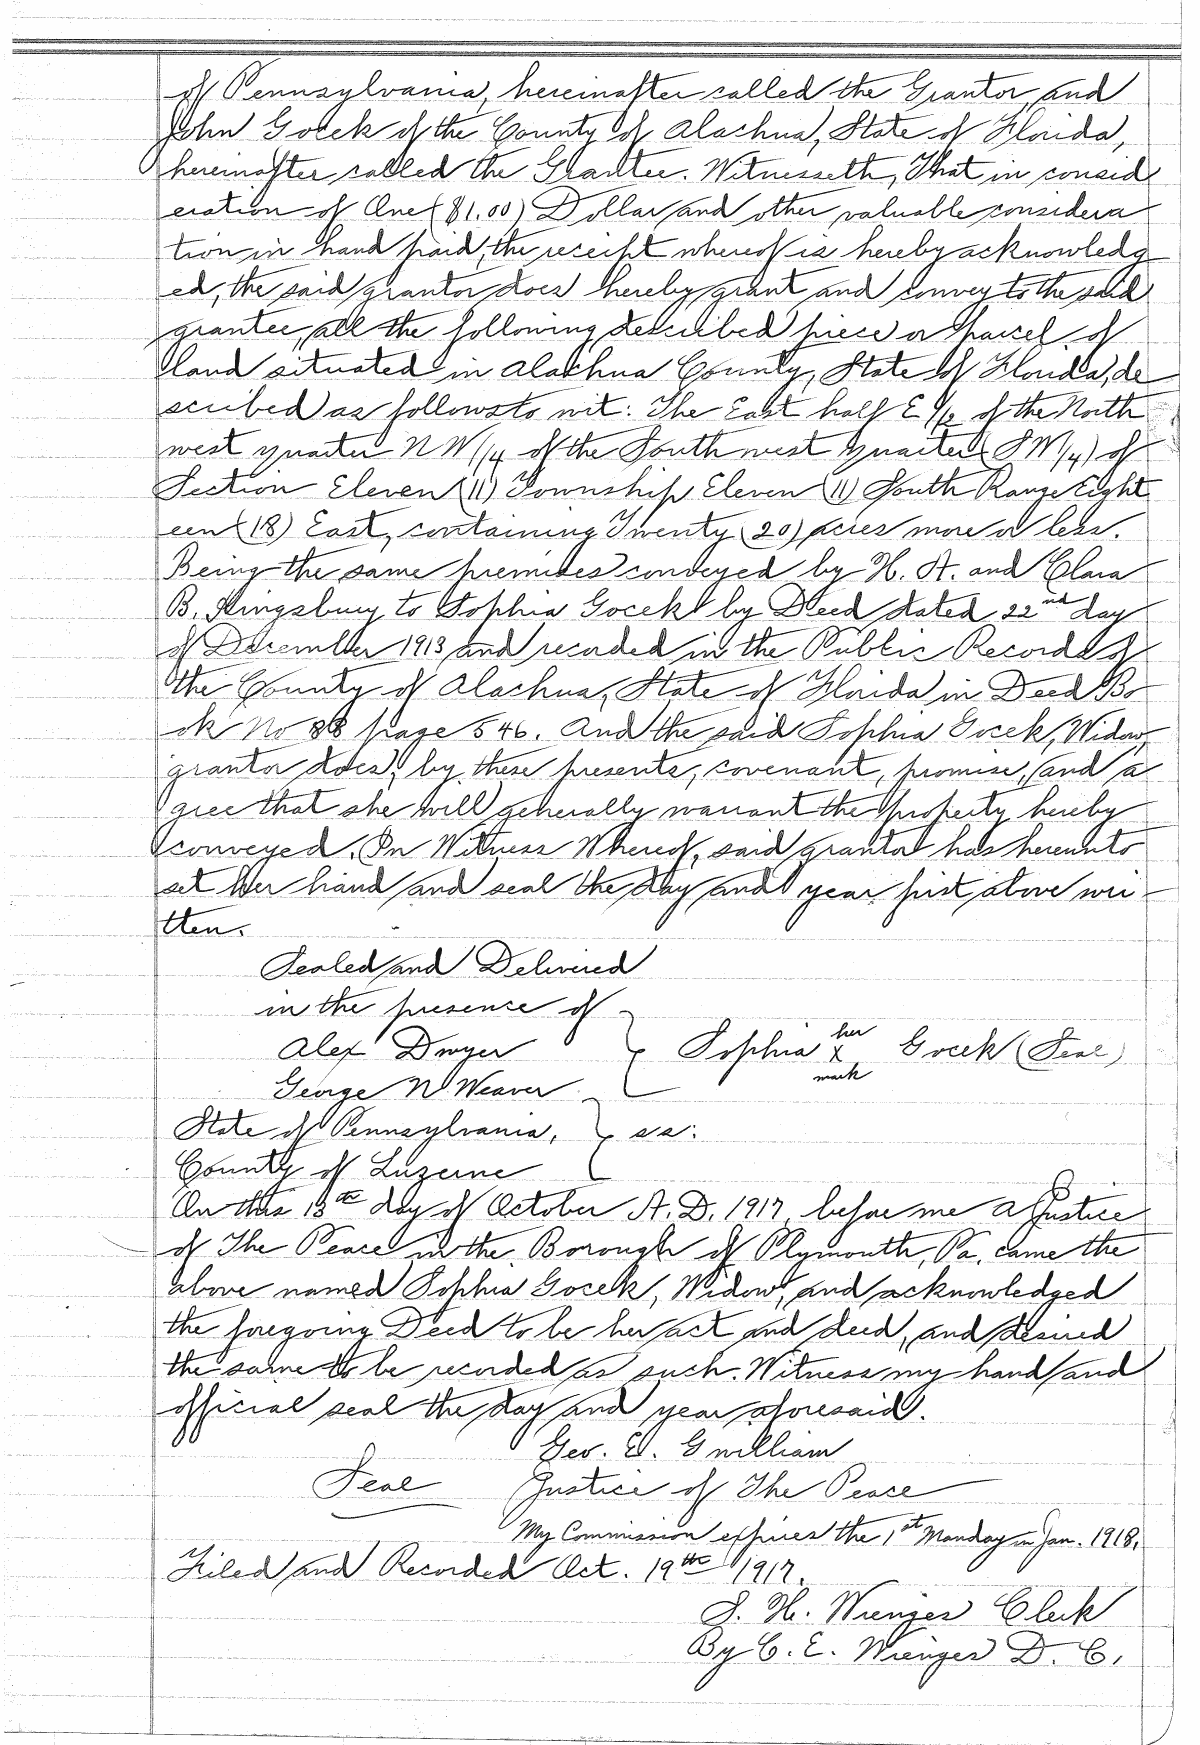 of Pennsylvania, hereinafter called the Grantor, and
John Gocek of the County of Alachua, State of Florida,
hereinafter called the Grantee. Witnesseth, That in consid
eration of One ($1.00) Dollar and other valuable considera
tion in hand paid, the receipt whereof is hereby acknowledg
ed, the said grantor does hereby grant and convey to the said
grantee, all the following described piece or parcel of
land situated in Alachua County, State of Florida, de
scribed as follows to wit: The East half E 1/2 of the North
west quarter NW/4 of the Southwest quarter (SW/4) of
Section Eleven (11) Township Eleven (11) South Range Eight
een (18) East, containing Twenty (20) acres more or less.
Being the same premises conveyed by H. A. and Clara
B. Kingsbury to Sophia Gocek by Deed dated 22nd day
of December 1913 and recorded in the Public Records of
the County of Alachua, State of Florida in Deed Bo
ok No 88 page 546. And the said Sophia Gocek, Widow,
grantor does, by these presents, covenant, promise, and a
gree that she will generally warrant the property hereby
conveyed. In Witness Whereof, said grantor has hereunto
set her hand and seal the day and year first above wri
tten.
Sealed and Delivered
in the presence of
Alex Dwyer
Sophia her x mark Gocek (Seal)
George N Weaver
State of Pennsylvania, ss:
County of Luzerne
On this 13th day of October A.D. 1917, before me a Justice
of The Peace in the Borough of Plymouth, Pa, came the
above named Sophia Gocek, Widow, and acknowledged
the foregoing Deed to be her act and deed, and desired
the same to be recorded as such. Witness my hand and
official seal the day and year aforesaid.
Geo. E. Gwilliam
Seal Justice of The Peace
My Commission expires the 1st Monday in Jan. 1918.
Filed and Recorded Oct. 19th 1917.
S. H. Wienges Clerk
By C. E. Wienges D. C.